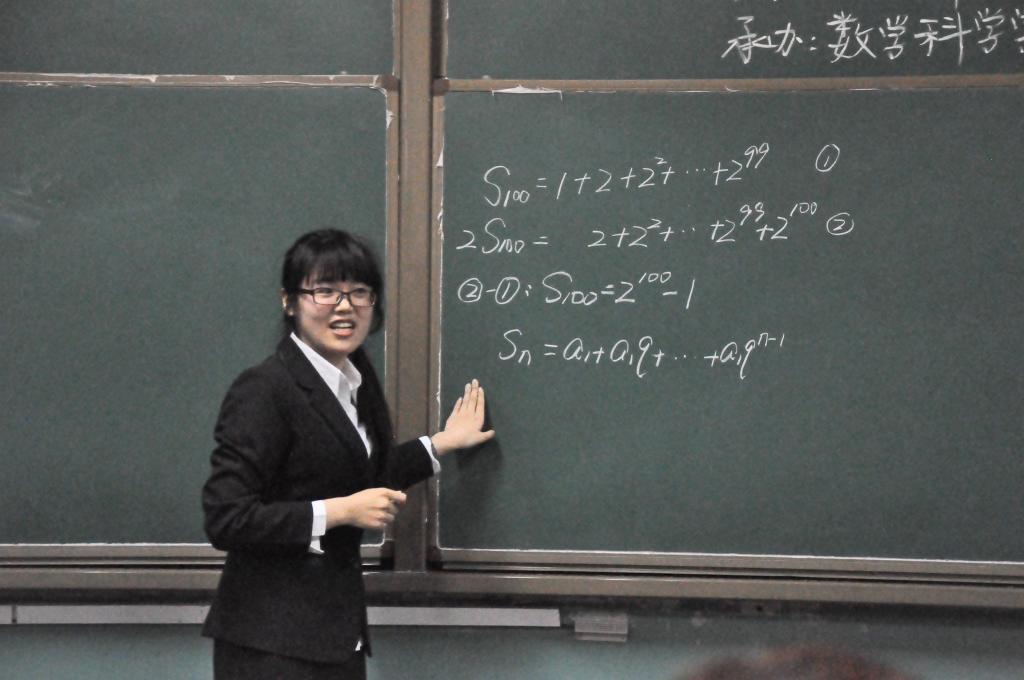 承办：数学科学学
S₁₀₀ = 1 + 2 + 2² + ⋯ + 2⁹⁹ ①
2S₁₀₀ = 2 + 2² + ⋯ + 2⁹⁹ + 2¹⁰⁰ ②
② - ①: S₁₀₀ = 2¹⁰⁰ - 1
Sₙ = a₁ + a₁q + ⋯ + a₁qⁿ⁻¹